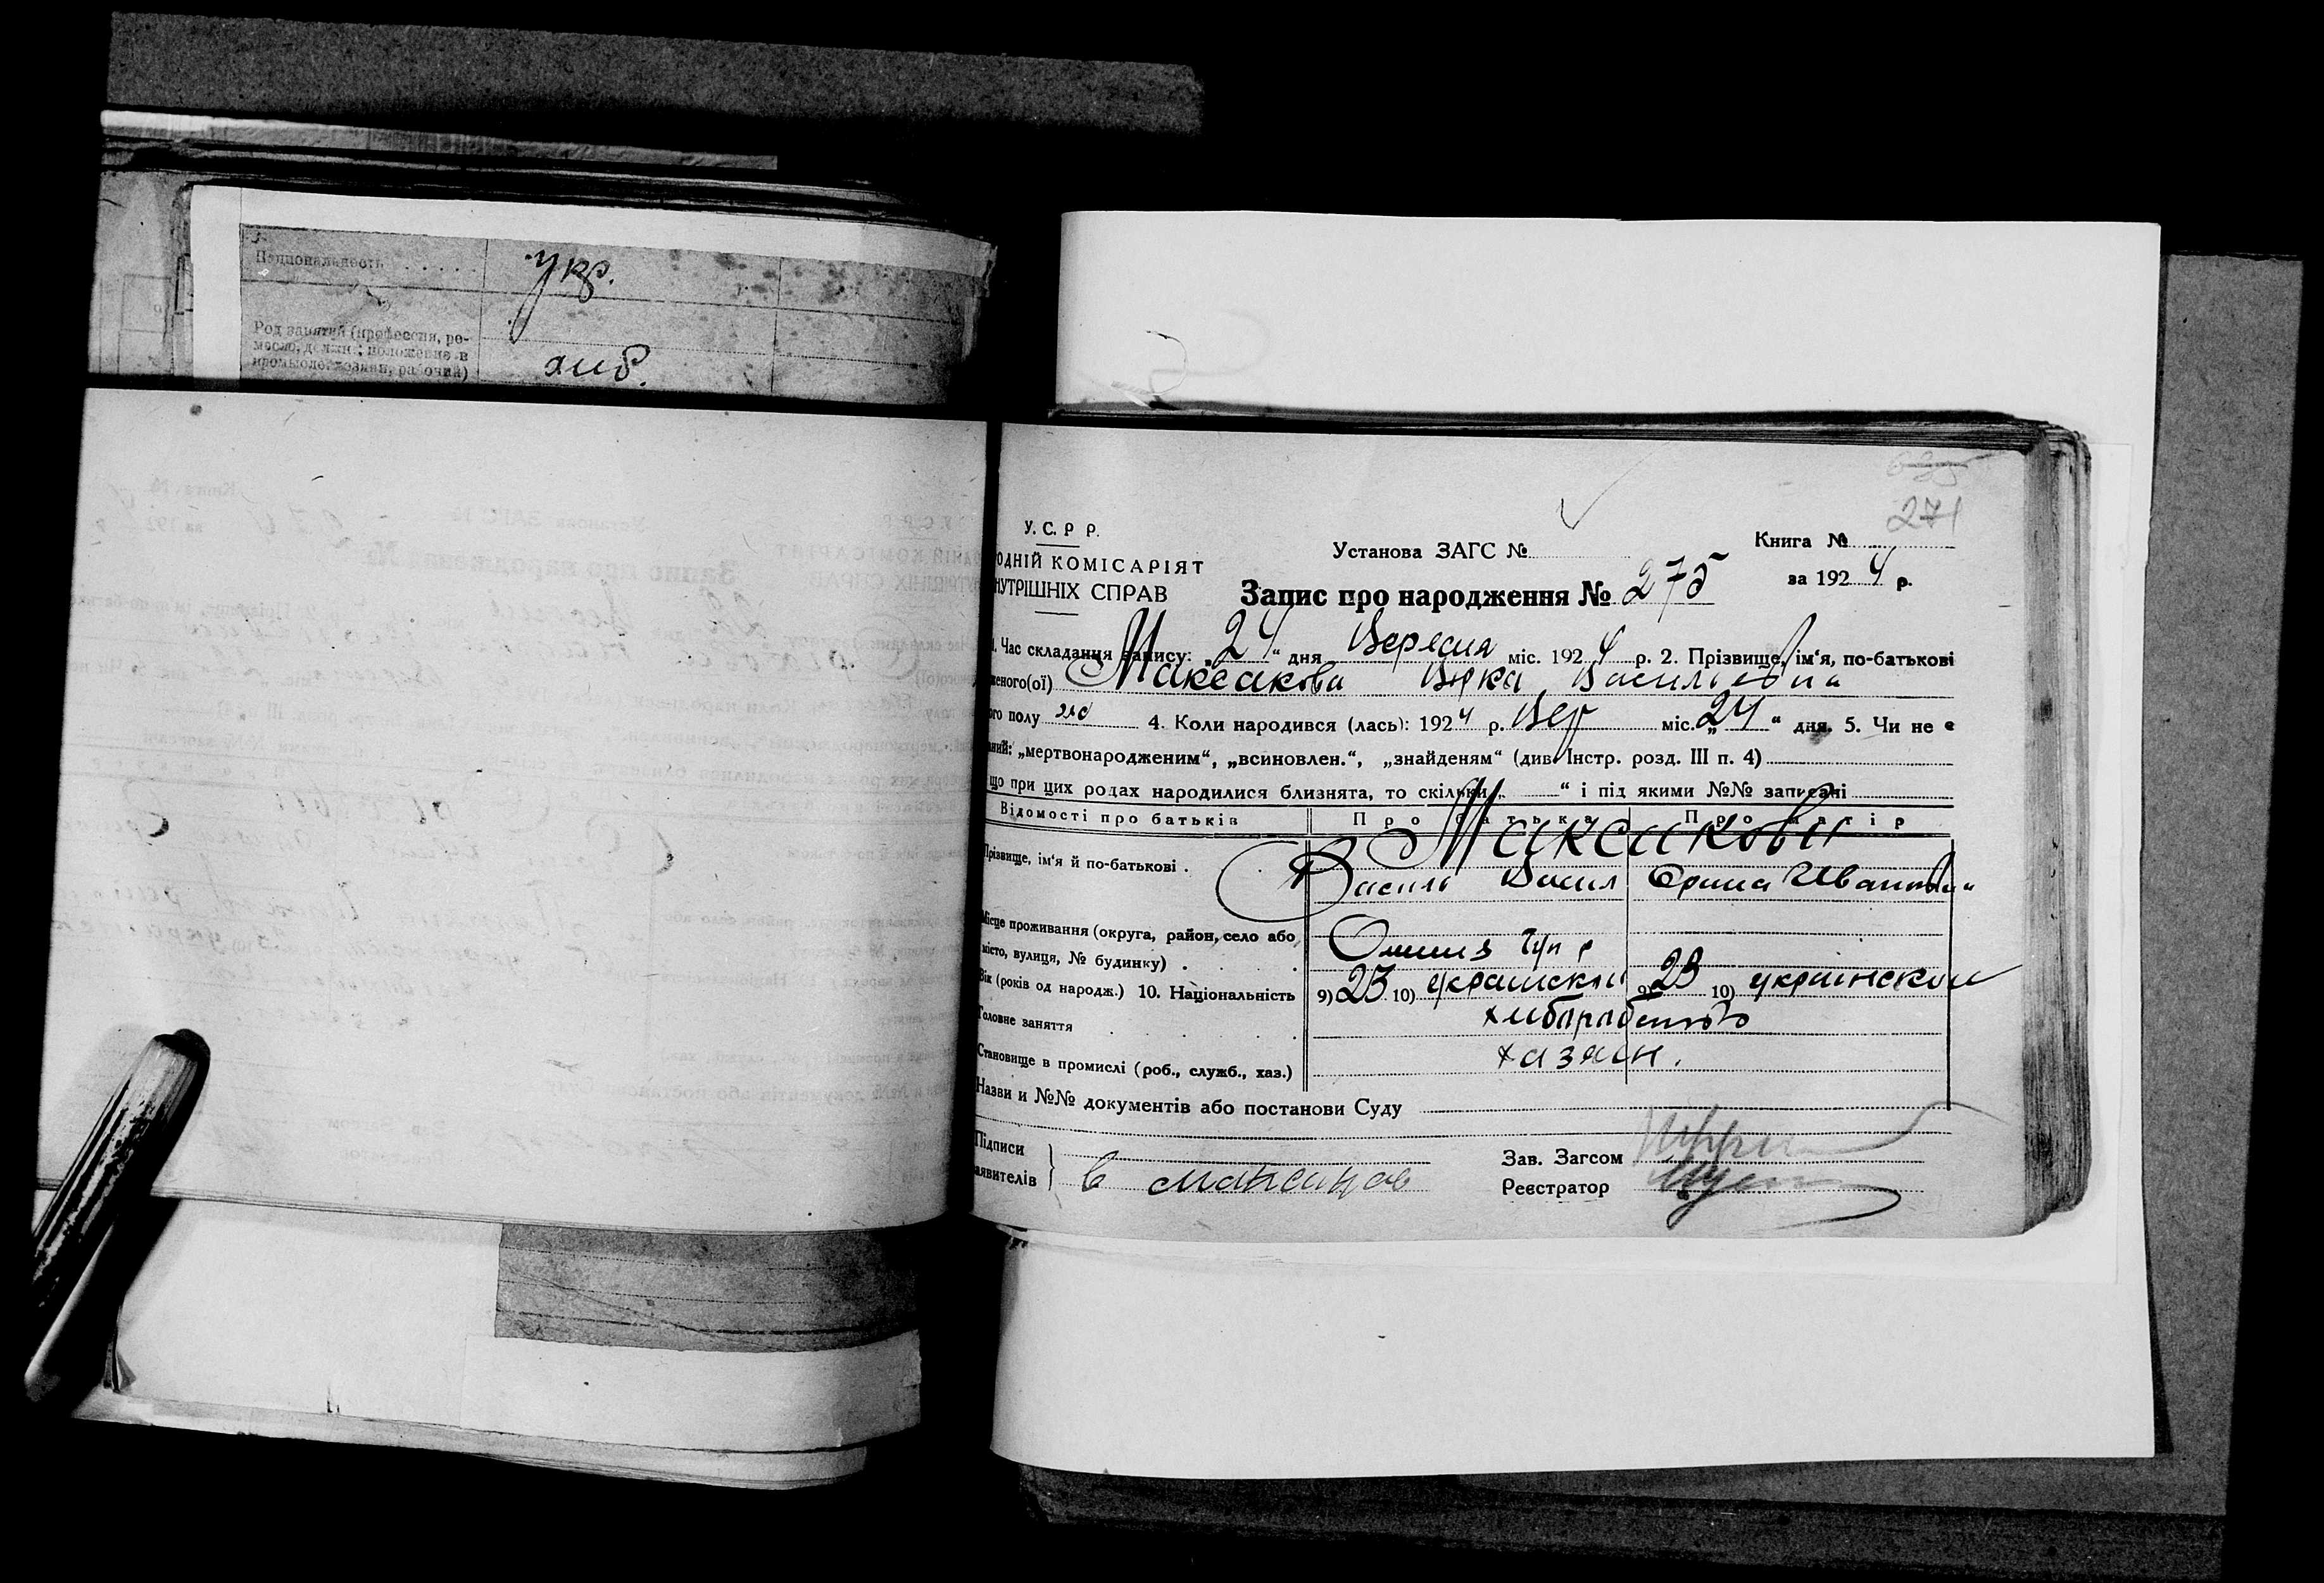 Национальность . . . . . укр.
Род занятий (профессия, ре-
месло, должн.; положение в
промысле: хозяин, рабочий) хліб.
271
У. С. Р. Р.
Установа ЗАГС №
Книга №
ОДНІЙ КОМІСАРІЯТ
НУТРІШНІХ СПРАВ
Запис про народження № 275
за 1924 р.
1. Час складання запису: „24“ дня Вересня міс. 1924 р. 2. Прізвище, ім‘я, по-батькові
женого(ої) Максакова Вірка Василієвна
ого полу жін 4. Коли народився (лась): 1924 р. Вер міс. „24“ дня. 5. Чи не є
аний: „мертвонародженим“, „всиновлен.“, „знайденям“ (див. Інстр. розд. III п. 4)
що при цих родах народилися близнята, то скільки „ “ і під якими №№ записані
Відомості про батьків Про батька Про матір
Максакови
Прізвище, ім‘я й по-батькові . Василь Васил Орина Іванівна
Місце проживання (округа, район, село або
місто, вулиця, № будинку) .
Вік (років од народж.) 10. Національність 9) 23 10) украинской 9) 23 10) украинской
Головне заняття хліборобство
Становище в промислі (роб., служб., хаз.) хазяін.
Назви и №№ документів або постанови Суду
Підписи
аявителів } В Максаков
Зав. Загсом
Реєстратор